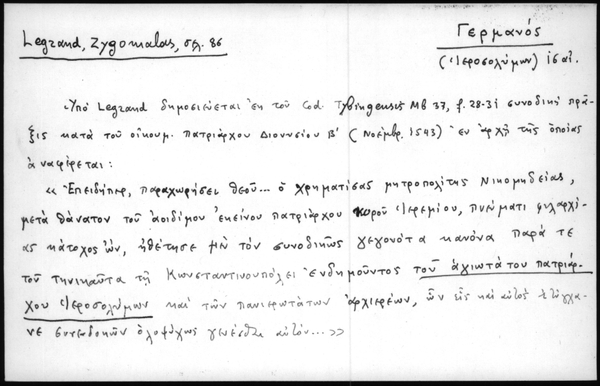 Legrand, Zygomalas, σελ. 86
Γερμανός
(Ἱεροσολύμων) ις΄ αἰ.
Ὑπό Legrand δημοσιεύεται ἐκ τοῦ Cod. Tybingensis MB 37, f. 28-31 συνοδική πρᾶ-
ξις κατά τοῦ οἰκουμ. πατριάρχου Διονυσίου Β΄ (Νοέμβρ. 1543) ἐν ἀρχῇ τῆς ὁποίας
ἀναφέρεται:
«Ἐπειδήπερ, παραχωρήσει θεοῦ... ὁ χρηματίσας μητροπολίτης Νικομηδείας,
μετά θάνατον τοῦ ἀοιδίμου ἐκείνου πατριάρχου κυροῦ Ἱερεμίου, πνεύματι φιλαρχί-
ας κάτοχος ὤν, ἠθέτησε μέν τόν συνοδικῶς γεγονότα κανόνα παρά τε
τοῦ τηνικαῦτα τῇ Κωνσταντινουπόλει ἐνδημοῦντος τοῦ ἁγιωτάτου πατριάρ-
χου Ἱεροσολύμων καί τῶν πανιερωτάτων ἀρχιερέων, ὧν εἷς καί αὐτός ἐτύγχα-
νε συνευδοκῶν ὁλοψύχως γενέσθαι αὐτόν...»